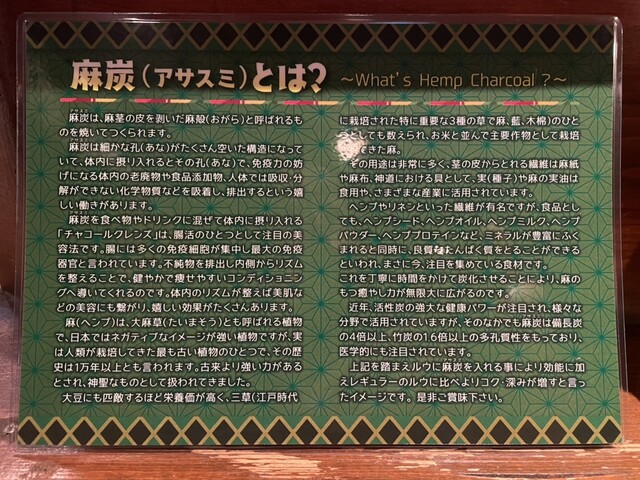 麻炭(アサスミ)とは? ～What's Hemp Charcoal?～
アサスミ
麻炭は、麻茎の皮を剥いだ麻殻(おがら)と呼ばれるも
のを焼いてつくられます。
アサスミ
麻炭は細かな孔(あな)がたくさん空いた構造になって
いて、体内に摂り入れるとその孔(あな)で、免疫力の妨
げになる体内の老廃物や食品添加物、人体では吸収・分
解ができない化学物質などを吸着し、排出するという嬉
しい働きがあります。
アサスミ
麻炭を食べ物やドリンクに混ぜて体内に摂り入れる
「チャコールクレンズ」は、腸活のひとつとして注目の美
容法です。腸には多くの免疫細胞が集中し最大の免疫
器官と言われています。不純物を排出し内側からリズム
を整えることで、健やかで痩せやすいコンディショニン
グへ導いてくれるのです。体内のリズムが整えば美肌な
どの美容にも繋がり、嬉しい効果がたくさんあります。
麻(ヘンプ)は、大麻草(たいまそう)とも呼ばれる植物
で、日本ではネガティブなイメージが強い植物ですが、実
は人類が栽培してきた最も古い植物のひとつで、その歴
史は1万年以上とも言われます。古来より強い力がある
とされ、神聖なものとして扱われてきました。
大豆にも匹敵するほど栄養価が高く、三草(江戸時代
に栽培された特に重要な3種の草で麻、藍、木綿)のひと
つとしても数えられ、お米と並んで主要作物として栽培
きた麻。
その用途は非常に多く、茎の皮からとれる繊維は麻紙
や麻布、神道における具として、実(種子)や麻の実油は
食用や、さまざまな産業に活用されています。
ヘンプやリネンといった繊維が有名ですが、食品とし
ても、ヘンプシード、ヘンプオイル、ヘンプミルク、ヘンプ
パウダー、ヘンププロテインなど、ミネラルが豊富にふく
まれると同時に、良質なたんぱく質をとることができる
といわれ、まさに今、注目を集めている食材です。
これを丁寧に時間をかけて炭化させることにより、麻の
もつ癒やし力が無限大に広がるのです。
近年、活性炭の強大な健康パワーが注目され、様々な
分野で活用されていますが、そのなかでも麻炭は備長炭
の4倍以上、竹炭の1.6倍以上の多孔質性をもっており、
医学的にも注目されています。
上記を踏まえルウに麻炭を入れる事により効能に加
えレギュラーのルウに比べよりコク・深みが増すと言っ
たイメージです。是非ご賞味下さい。